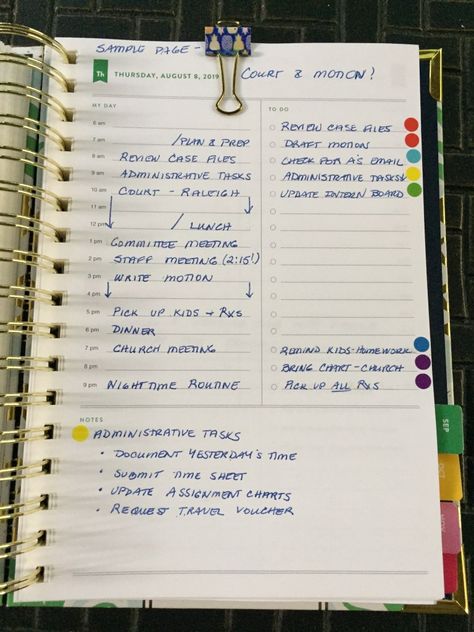 SAMPLE PAGE -
Th THURSDAY, AUGUST 8, 2019 COURT & MOTION!
MY DAY
6 am
7 am /PLAN & PREP
8 am REVIEW CASE FILES
9 am ADMINISTRATIVE TASKS
10 am COURT - RALEIGH
11 am
12 pm / LUNCH
1 pm COMMITTEE MEETING
2 pm STAFF MEETING (2:15!)
3 pm WRITE MOTION
4 pm
5 pm PICK UP KIDS + RXS
6 pm DINNER
7 pm CHURCH MEETING
8 pm
9 pm NIGHTTIME ROUTINE
TO DO
REVIEW CASE FILES
DRAFT MOTION
CHECK FOR A'S EMAIL
ADMINISTRATIVE TASKS↓
UPDATE INTERN BOARD
REMIND KIDS-HOMEWORK
BRING CHART-CHURCH
PICK UP ALL RXS
NOTES
ADMINISTRATIVE TASKS
• DOCUMENT YESTERDAY'S TIME
• SUBMIT TIME SHEET
• UPDATE ASSIGNMENT CHARTS
• REQUEST TRAVEL VOUCHER
SEP
OCT
NOV